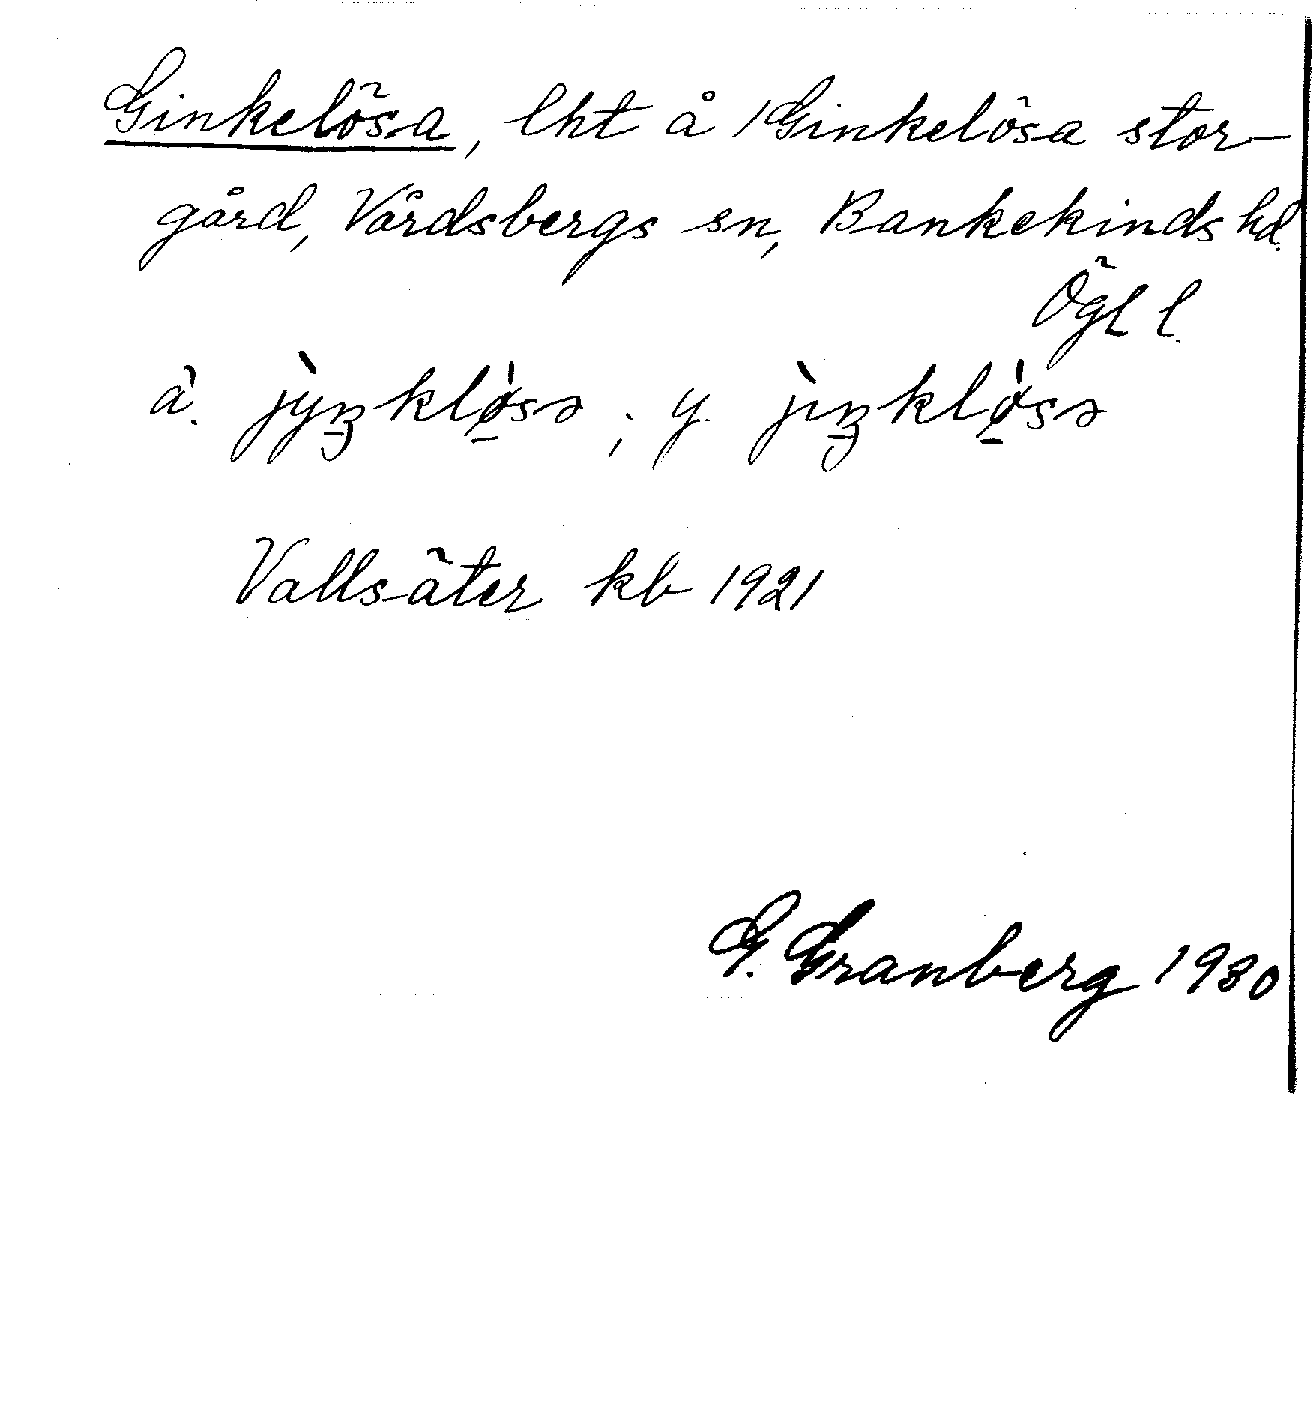 Ginkelösa, lht å /Ginkelösa stor-
gård, Vårdsbergs sn, Bankekinds hd.
Ögl l.
ä. jỳŋkløsə ; y. jìŋkløsə
Vallsäter kb 1921
G. Granberg 1930